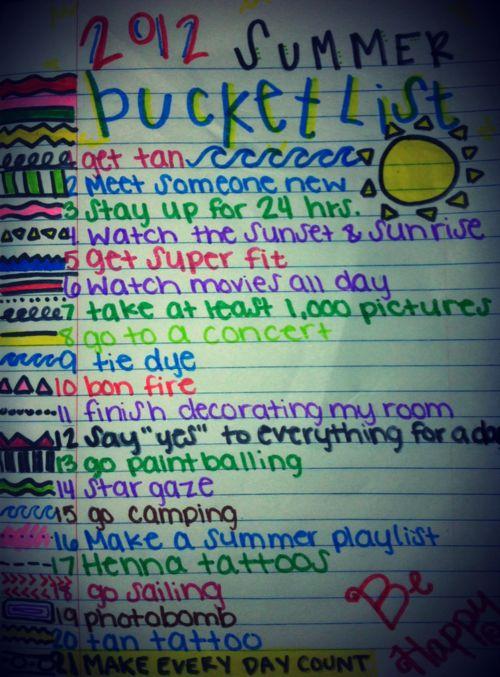 2012 SUMMER
bucket List
1 get tan
2 Meet someone new
3 Stay up for 24 hrs.
4 Watch the sunset & sunrise
5 get super fit
6 Watch movies all day
7 take at least 1,000 pictures
8 go to a concert
9 tie dye
10 bon fire
11 finish decorating my room
12 Say "yes" to everything for a day
13 go paint balling
14 Star gaze
15 go camping
16 Make a summer playlist
17 Henna tattoos
18 go sailing
19 photobomb
20 tan tattoo
21 MAKE EVERY DAY COUNT
Be
Happy